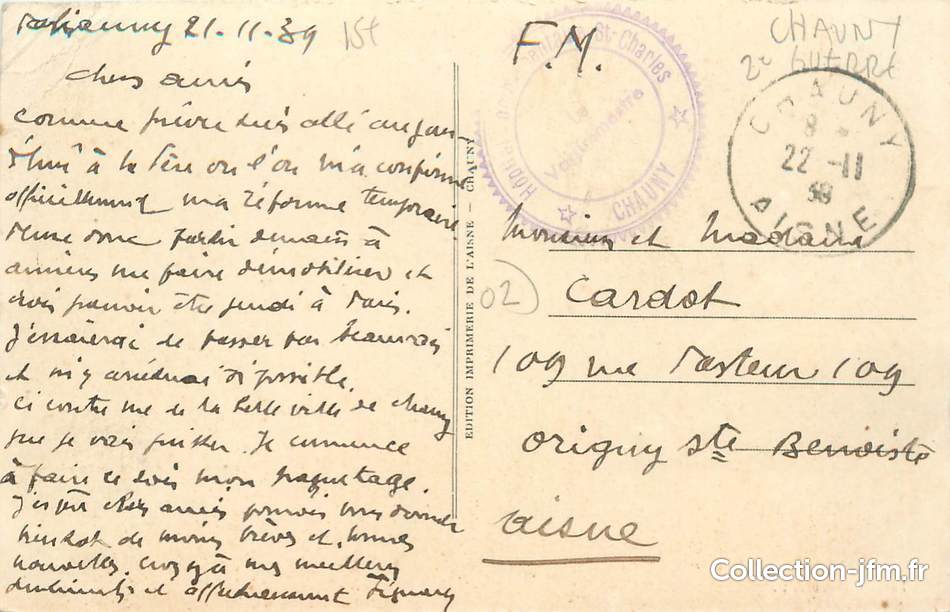 Chauny 21-11-39
1St
F.M.
CHAUNY
2e GUERRE
chers amis
comme prévu suis allé aujour
d'hui à la Fère où l'on m'a confirmé
officiellement ma réforme temporaire.
donc partir demain à
me faire démobiliser et
pouvoir être jeudi à Paris.
J'essaierai de passer par Beauvais
et m'y si possible.
Ci contre vue de la belle ville de Chauny
que je vais quitter. Je commence
à faire ce soir mon paquetage.
J'espère chers amis pouvoir vous donner
bientôt de moins brèves et bonnes
nouvelles. croyez à mes meilleurs
sentiments et affectueusement
St-Charles
Vaguemestre
CHAUNY
CHAUNY
8
22-11
39
AISNE
EDITION IMPRIMERIE DE L'AISNE - CHAUNY
Monsieur et Madame
Cardot
02
109 rue Pasteur 109
Origny Ste Benoiste
Aisne
Collection-jfm.fr